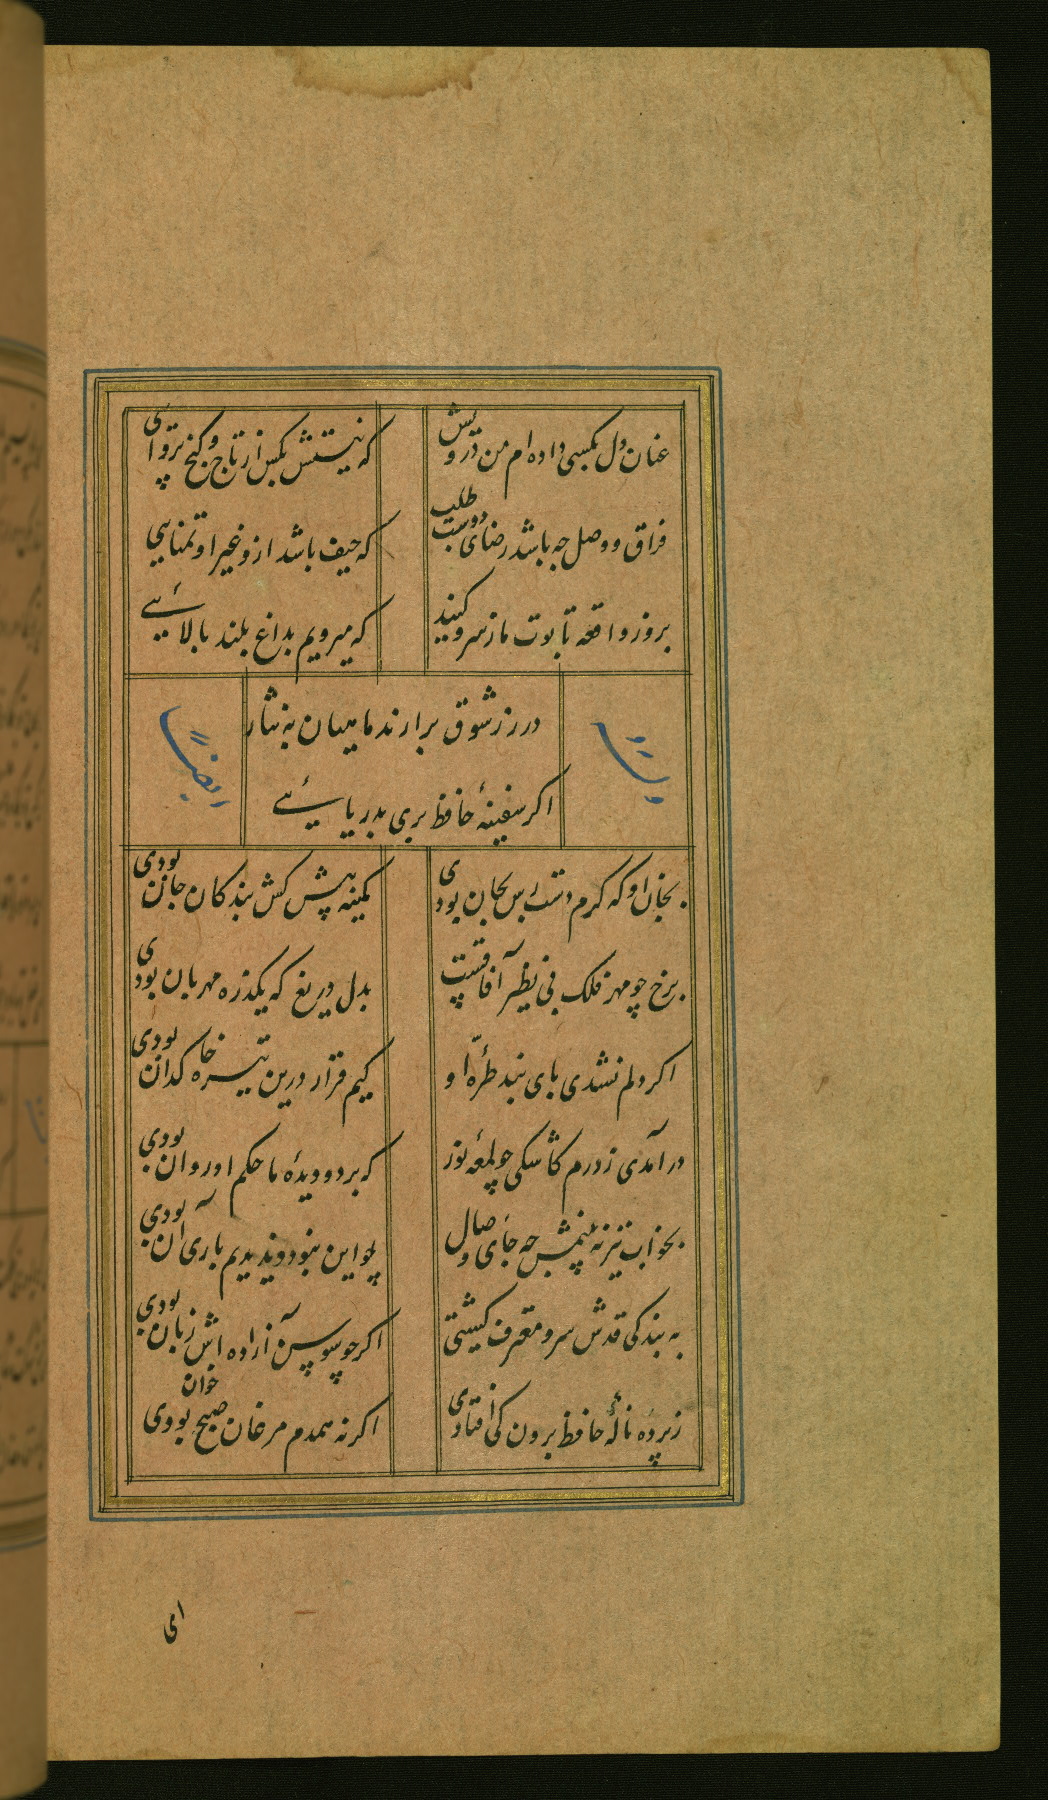 عنان دل بکسی داده ام من درویش
که نیستش بکس از تاج و گنج پروای
فراق و وصل چه باشد رضای دوست طلب
که حیف باشد ازو غیر او تمنایی
بروز واقعه تابوت ما ز سرو کنید
که میرویم بداغ بلند بالائی
درر ز شوق برارند ماهیان به نثار
اکر سفینهٔ حافظ بری بدریائی
وله
ایضاً
بجان او که کرم دست رس بجان بودی
کمینه پیش کش بندکان جان بودی
برخ چو مهر فلک بی نظیر آفاقست
بدل دریغ که یکذره مهربان بودی
اکر دلم نشدی پای بند طرّهٔ او
کیم قرار درین تیره خاکدان بودی
درآمدی ز درم کاشکی چو لمعهٔ نور
که بر دو دیدهٔ ما حکم او روان بودی
بخواب نیز نه بینمش چه جای وصال
چو این نبود و ندیدیم باری آن بودی
به بندکی قدش سرو معترف کشتی
اکر چو سوسن آزاده اش زبان بودی
ز پرده نالهٔ حافظ برون کی افتادی
اکر نه همدم مرغان صبح خوان بودی
ای